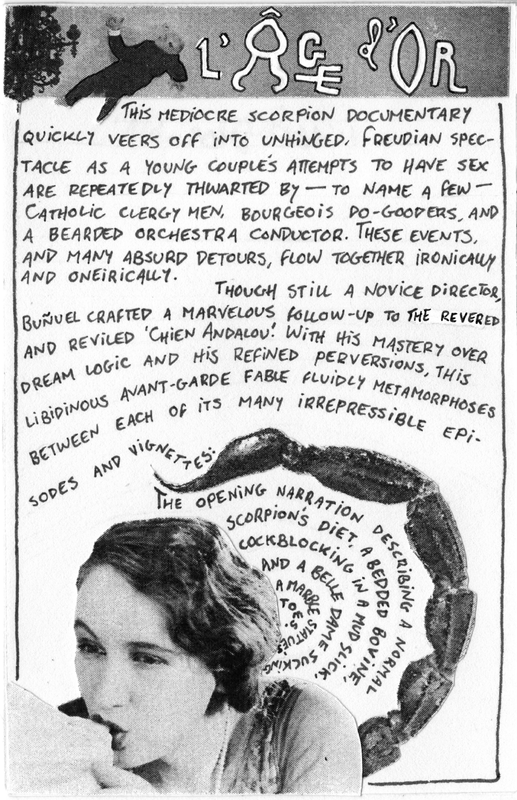 L'ÂGE d'OR
THIS MEDIOCRE SCORPION DOCUMENTARY
QUICKLY VEERS OFF INTO UNHINGED, FREUDIAN SPEC-
TACLE AS A YOUNG COUPLE'S ATTEMPTS TO HAVE SEX
ARE REPEATEDLY THWARTED BY — TO NAME A FEW —
CATHOLIC CLERGYMEN, BOURGEOIS DO-GOODERS, AND
A BEARDED ORCHESTRA CONDUCTOR. THESE EVENTS,
AND MANY ABSURD DETOURS, FLOW TOGETHER IRONICALLY
AND ONEIRICALLY.
THOUGH STILL A NOVICE DIRECTOR,
BUÑUEL CRAFTED A MARVELOUS FOLLOW-UP TO THE REVERED
AND REVILED 'CHIEN ANDALOU'. WITH HIS MASTERY OVER
DREAM LOGIC AND HIS REFINED PERVERSIONS, THIS
LIBIDINOUS AVANT-GARDE FABLE FLUIDLY METAMORPHOSES
BETWEEN EACH OF ITS MANY IRREPRESSIBLE EPI-
SODES AND VIGNETTES:
THE OPENING NARRATION DESCRIBING A NORMAL
SCORPION'S DIET, A BEDDED BOVINE,
COCKBLOCKING IN A MUD SLICK,
AND A BELLE DAME SUCKING
A MARBLE STATUE'S
TOES.